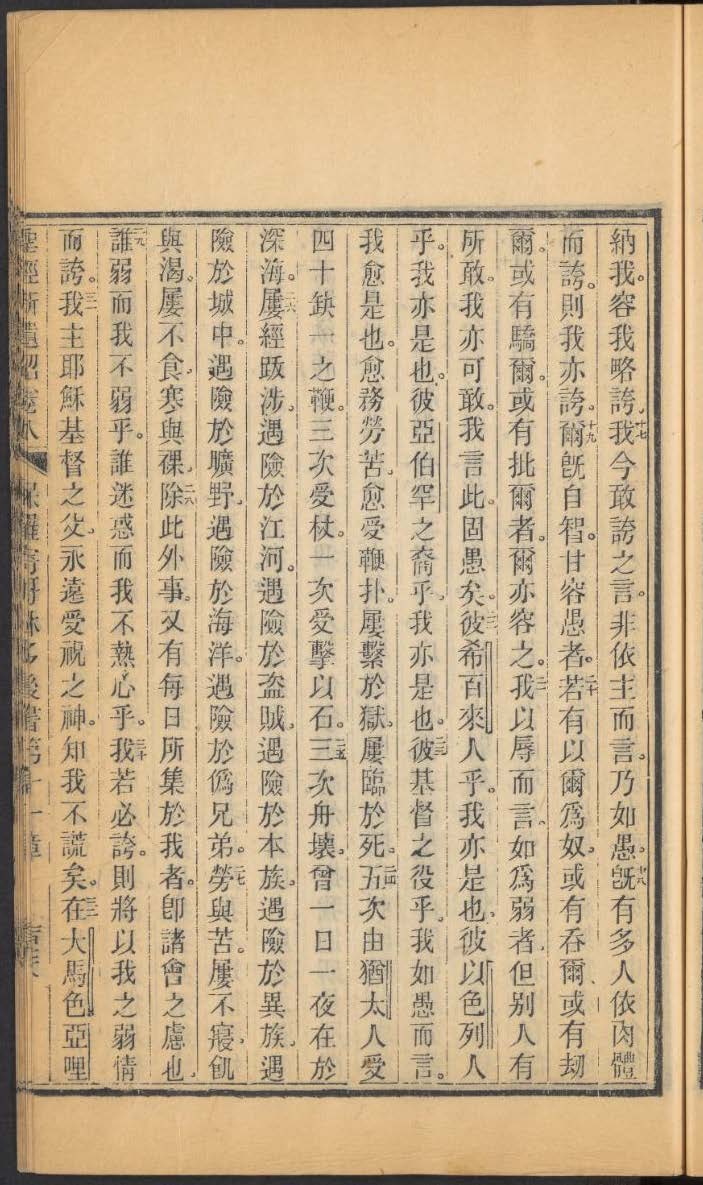 納我。容我略誇。十七我今敢誇之言。非依主而言。乃如愚。十八旣有多人依肉體
而誇。則我亦誇。十九爾旣自智。甘容愚者。二十若有以爾爲奴。或有吞爾。或有刼
爾。或有驕爾。或有批爾者。爾亦容之。二一我以辱而言。如爲弱者。但别人有
所敢。我亦可敢。我言此。固愚矣。二二彼希百來人乎。我亦是也。彼以色列人
乎。我亦是也。彼亞伯罕之裔乎。我亦是也。二三彼基督之役乎。我如愚而言。
我愈是也。愈務勞苦。愈受鞭扑。屢繫於獄。屢臨於死。二四五次由猶太人受
四十缺一之鞭。三次受杖。一次受擊以石。二五三次舟壞。曾一日一夜在於
深海。二六屢經跋涉。遇險於江河。遇險於盜賊。遇險於本族。遇險於異族。遇
險於城中。遇險於曠野。遇險於海洋。遇險於僞兄弟。二七勞與苦。屢不寢。飢
與渴。屢不食。寒與裸。二八除此外事。又有每日所集於我者。卽諸會之慮也。
二九誰弱而我不弱乎。誰迷惑而我不熱心乎。三十我若必誇。則將以我之弱情
而誇。三一我主耶穌基督之父。永遠受祝之神。知我不謊矣。三二在大馬色亞哩
聖經新遺詔卷八 保羅寄哥林多後書第十一章